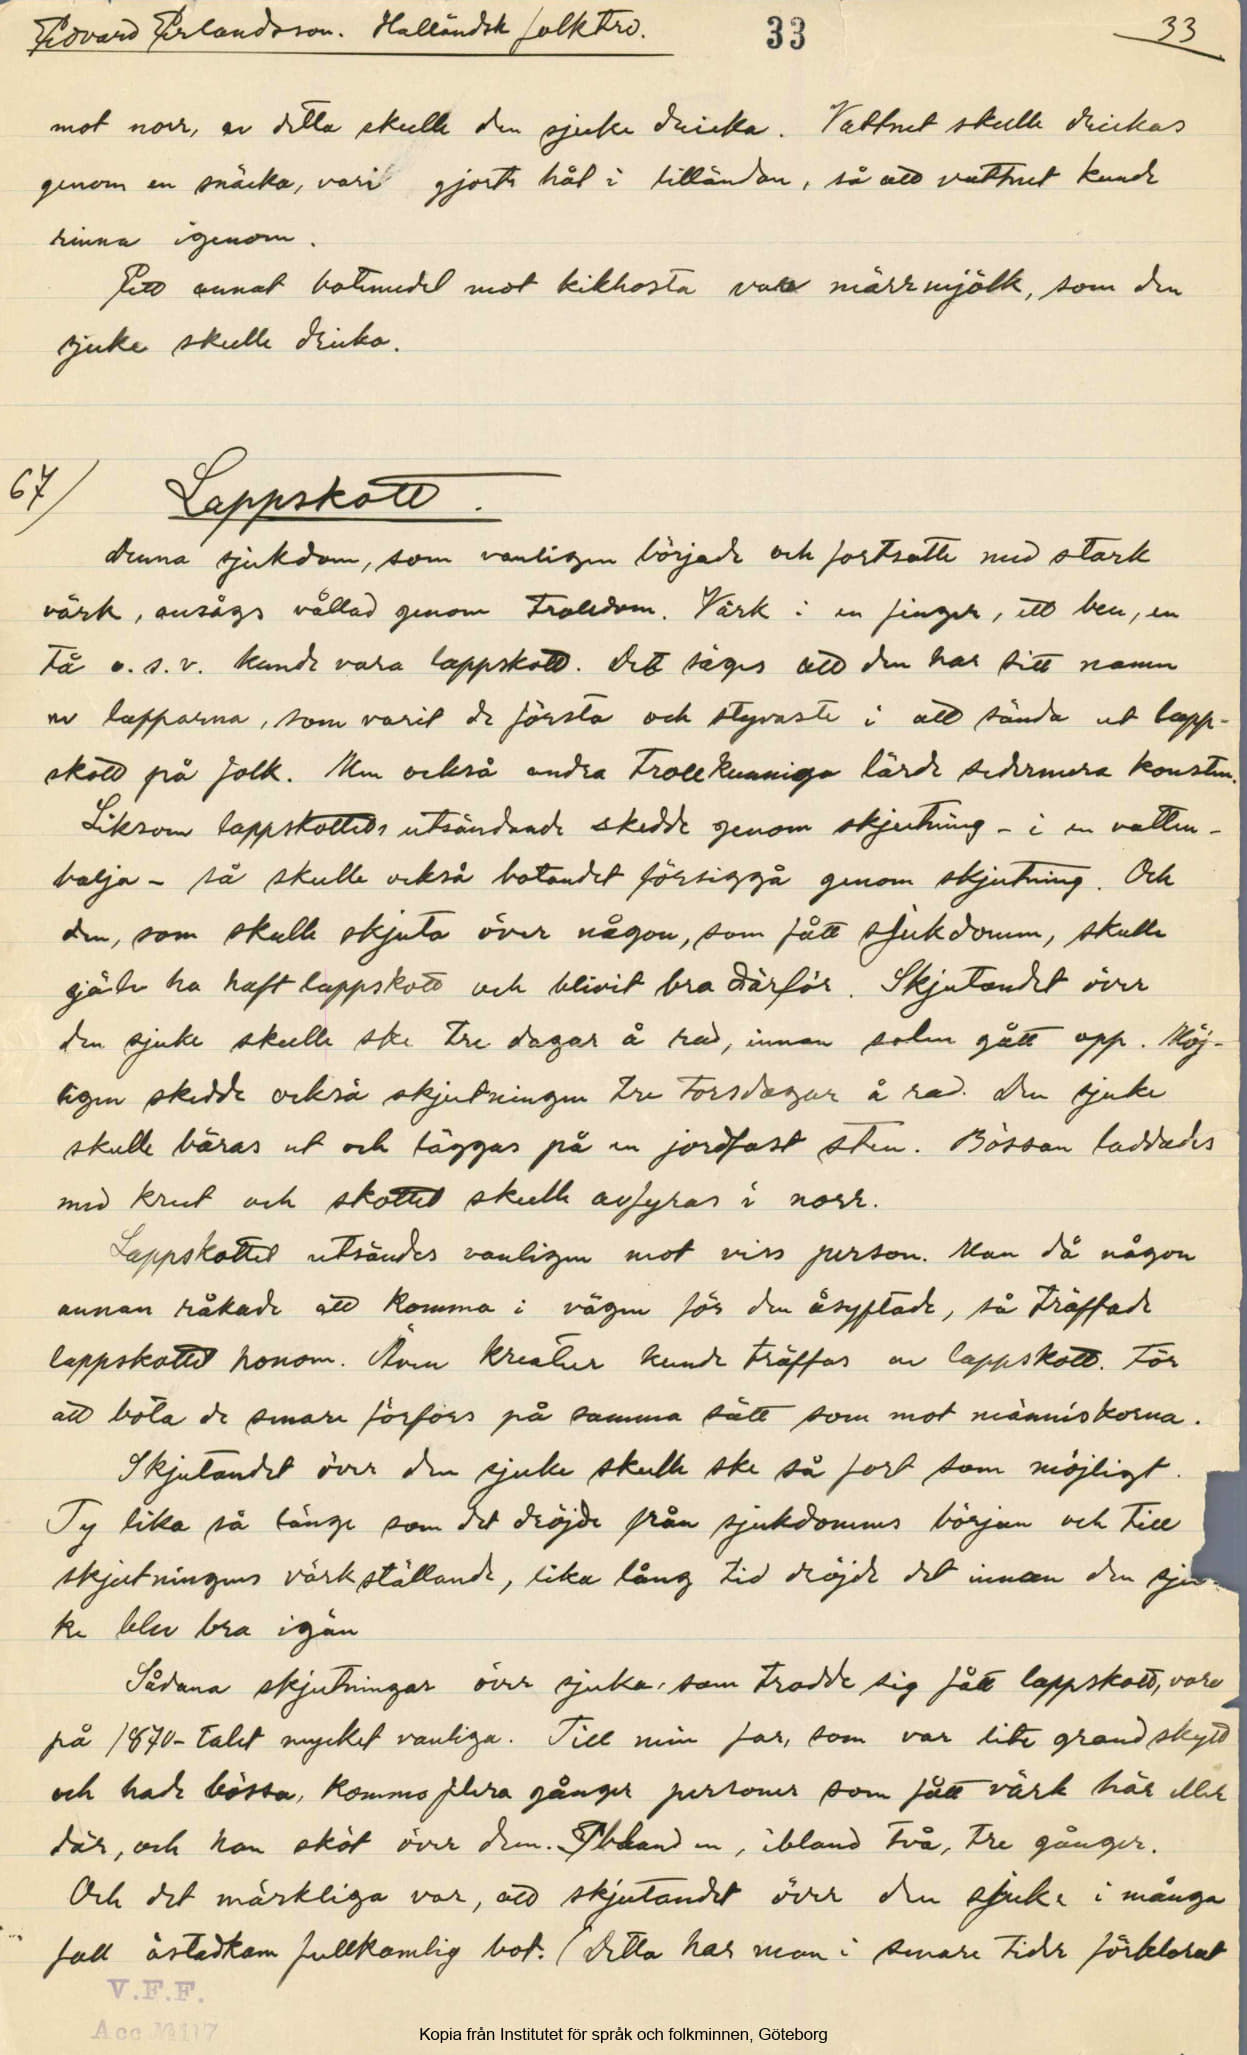 Edvard Erlandsson. Halländsk folktro. 33 33
mot norr, av detta skulle den sjuke dricka. Vattnet skulle drickas
genom en snäcka, vari gjorts hål i lilländan, så att vattnet kunde
rinna igenom.
Ett annat botemedel mot kikhosta var märrmjölk, som den
sjuke skulle dricka.
67/ Lappskott.
Denna sjukdom, som vanligen började och fortsatte med stark
värk, ansågs vållad genom trolldom. Värk i en finger, ett ben, en
tå o.s.v. kunde vara lappskott. Det säges att den har sitt namn
av lapparna, som varit de första och styvaste i att sända ut lapp-
skott på folk. Men också andra trollkunniga lärde sedermera konsten.
Liksom lappskottets utsändande skedde genom skjutning - i en vatten-
balja - så skulle också botandet försiggå genom skjutning. Och
den, som skulle skjuta över någon, som fått sjukdomen, skulle
själv ha haft lappskott och blivit bra därför. Skjutandet över
den sjuke skulle ske tre dagar å rad, innan solen gått opp. Möj-
ligen skedde också skjutningen tre torsdagar å rad. Den sjuke
skulle bäras ut och läggas på en jordfast sten. Bössan laddades
med krut och skottet skulle avfyras i norr.
Lappskottet utsändes vanligen mot viss person. Man då någon
annan råkade att komma i vägen för den åsyftade, så träffade
lappskottet honom. Även kreatur kunde träffas av lappskott. För
att bota de senare förfors på samma sätt som mot människorna.
Skjutandet över den sjuke skulle ske så fort som möjligt.
Ty lika så länge som det dröjde från sjukdomens början och till
skjutningens värkställande, lika lång tid dröjde det innan den sju-
ke blev bra igän
Sådana skjutningar över sjuka, som trodde sig fått lappskott, voro
på 1870-talet mycket vanliga. Till min far, som var lite grand skytt
och hade bössa, kommo flera gånger personer som fått värk här eller
där, och han sköt över dem. Ibland en, ibland två, tre gånger.
Och det märkliga var, att skjutandet över den sjuke i många
fall åstadkom fullkomlig bot. (Detta har man i senare tider förklarat
V.F.F.
Acc № 117
Kopia från Institutet för språk och folkminnen, Göteborg